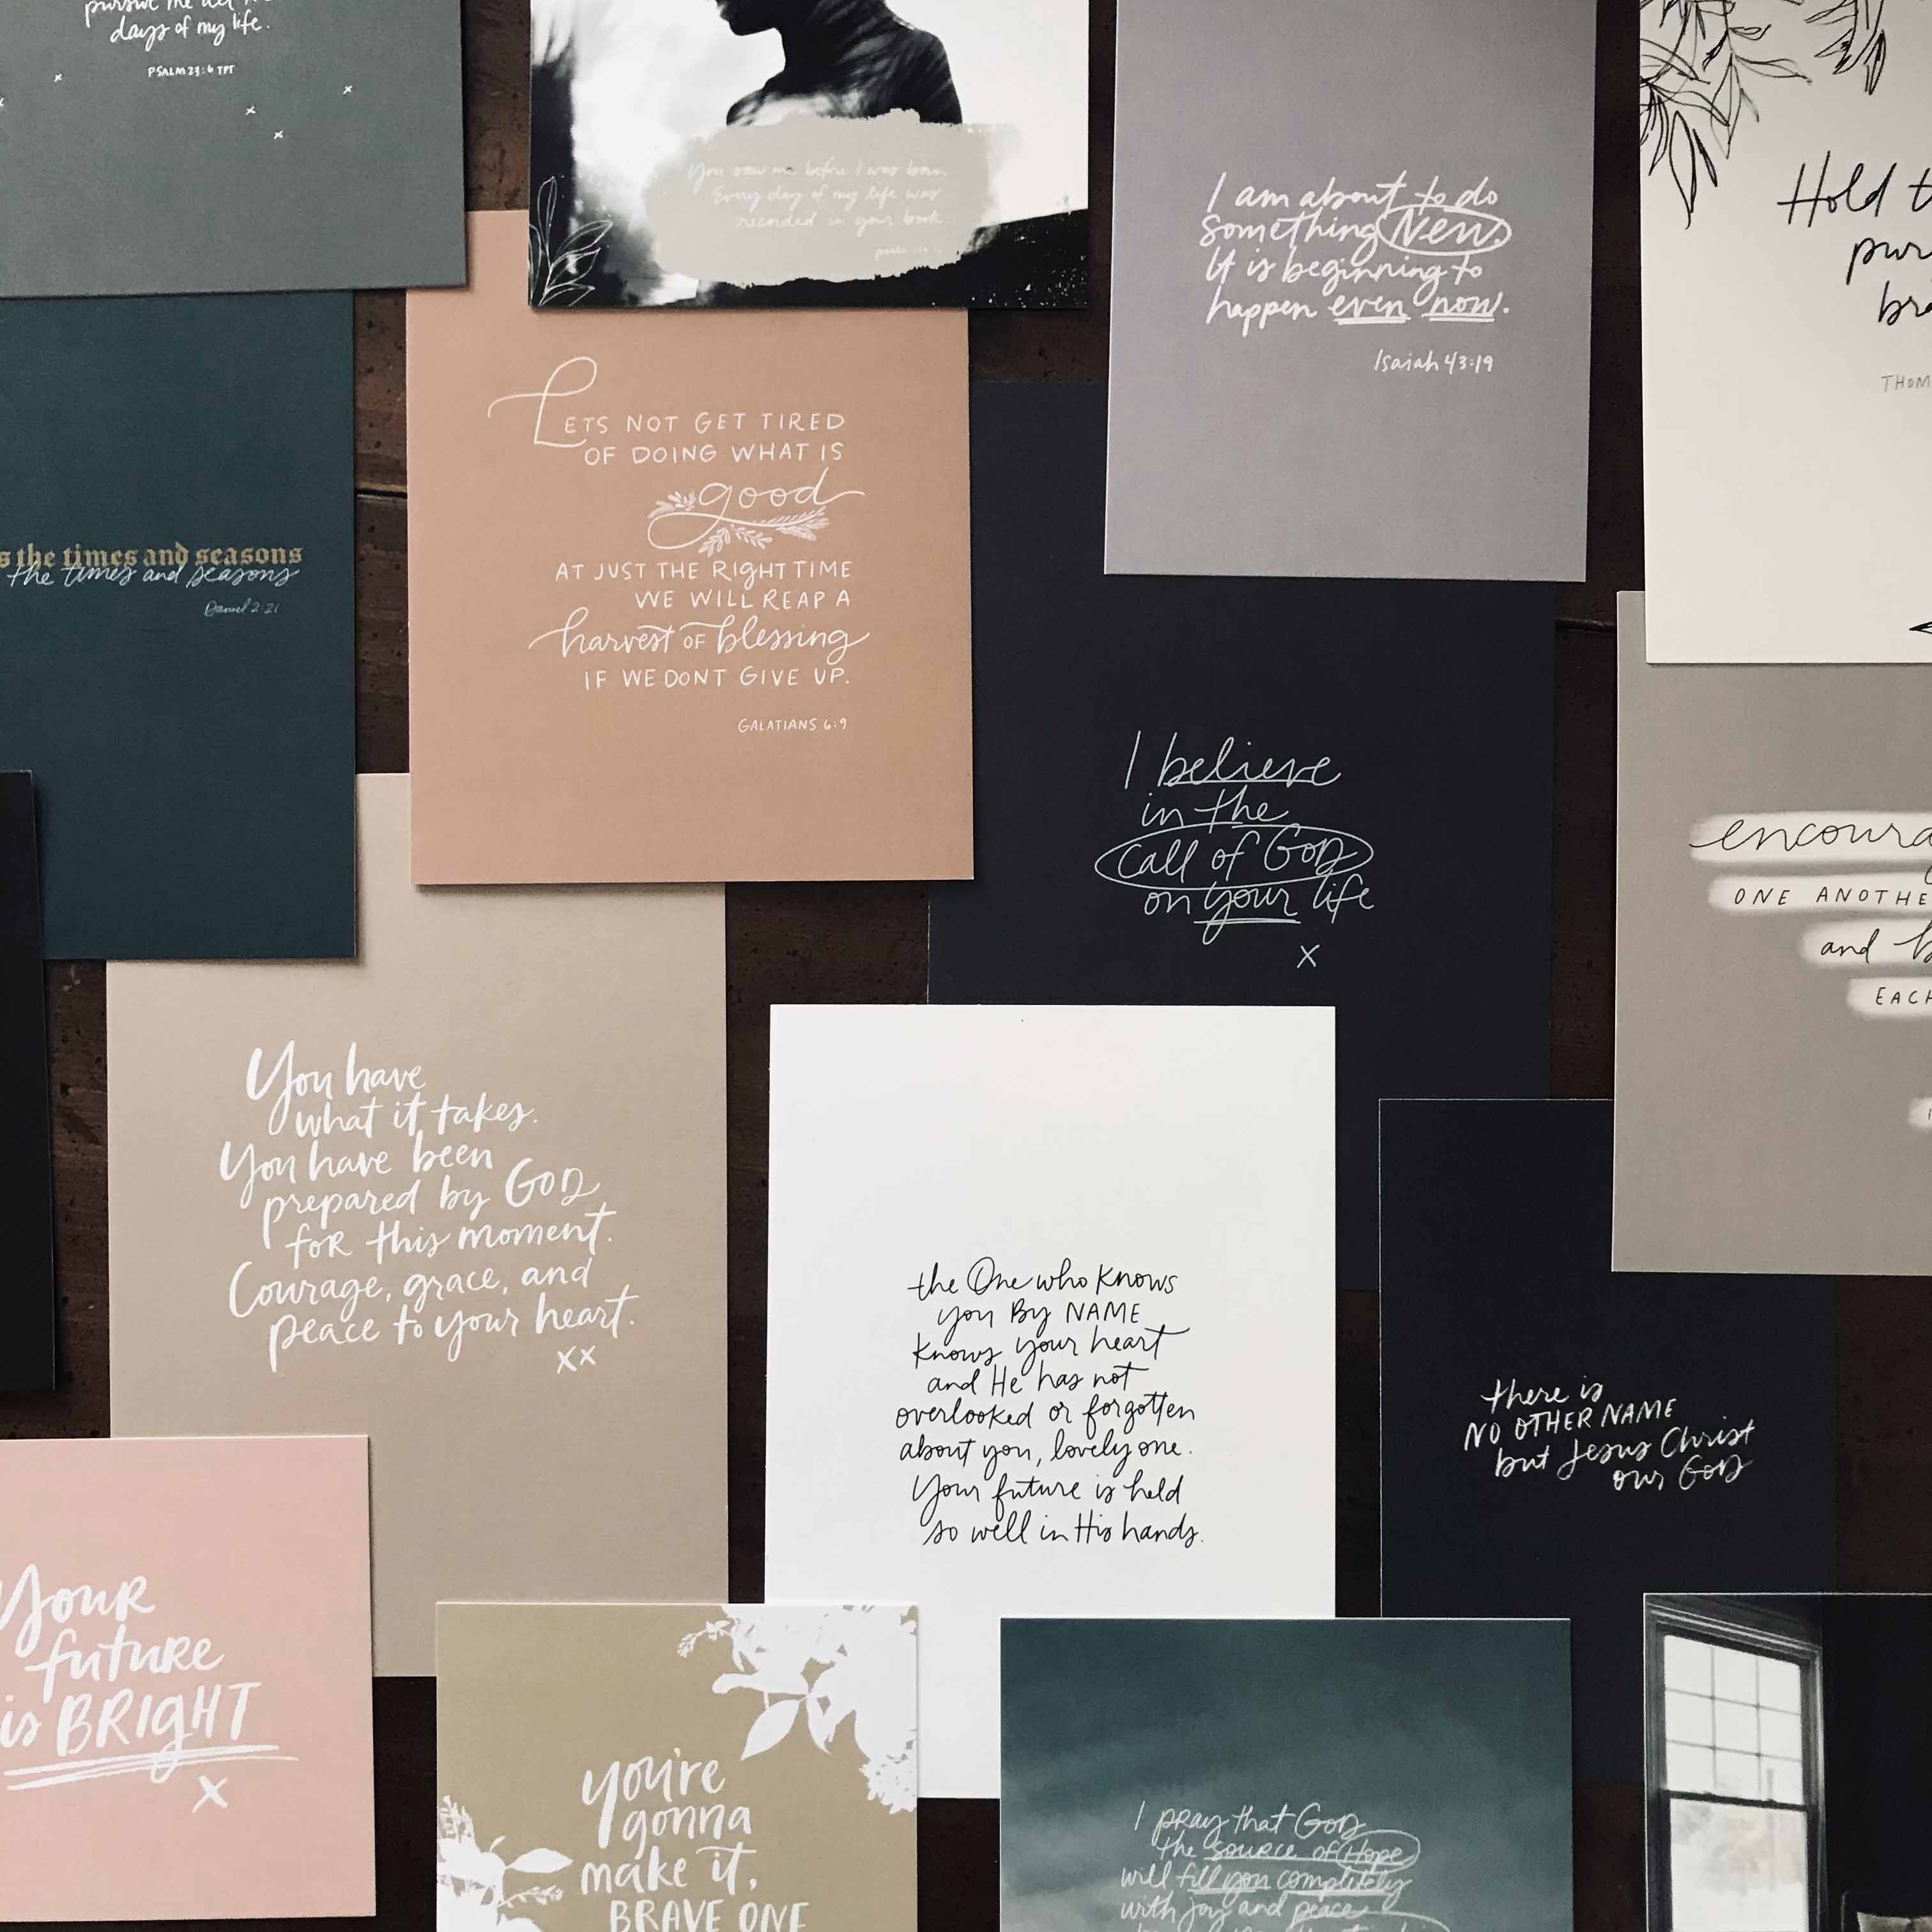 pursue me all the
days of my life.
PSALM 23:6 TPT
You saw me before I was born
Every day of my life was
recorded in your book
I am about to do
something New.
It is beginning to
happen even now.
Isaiah 43:19
Hold
pur
bre
THOM
s the times and seasons
the times and seasons
Daniel 2:21
LETS NOT GET TIRED
OF DOING WHAT IS
good
AT JUST THE RIGHT TIME
WE WILL REAP A
harvest OF blessing
IF WE DONT GIVE UP.
GALATIANS 6:9
I believe
in the
call of God
on your life
x
encourag
ONE ANOTHE
and b
EACH
You have
what it takes.
You have been
prepared by GOD
for this moment.
Courage, grace, and
peace to your heart.
xx
the One who knows
you By NAME
knows your heart
and He has not
overlooked or forgotten
about you, lovely one.
Your future is held
so well in His hands.
there is
NO OTHER NAME
but Jesus Christ
our GOD
Your
future
is BRIGHT
x
you're
gonna
make it,
BRAVE ONE
I pray that GOD
the source of Hope
will fill you completely
with joy and peace